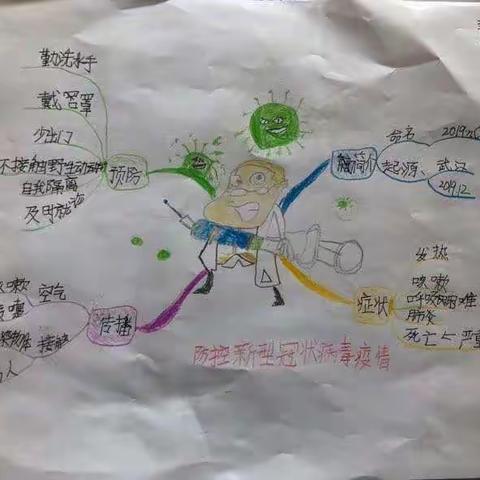 勤洗水手
戴口罩
少出门
不接触野生动物
自我隔离
及时就医
预防
简介
命名
2019
起源、
武汉
2019.12
症状
发热
咳嗽
呼吸困难
肺炎
死亡<严重
传播
空气
咳嗽
接触
人
防控新型冠状病毒疫情